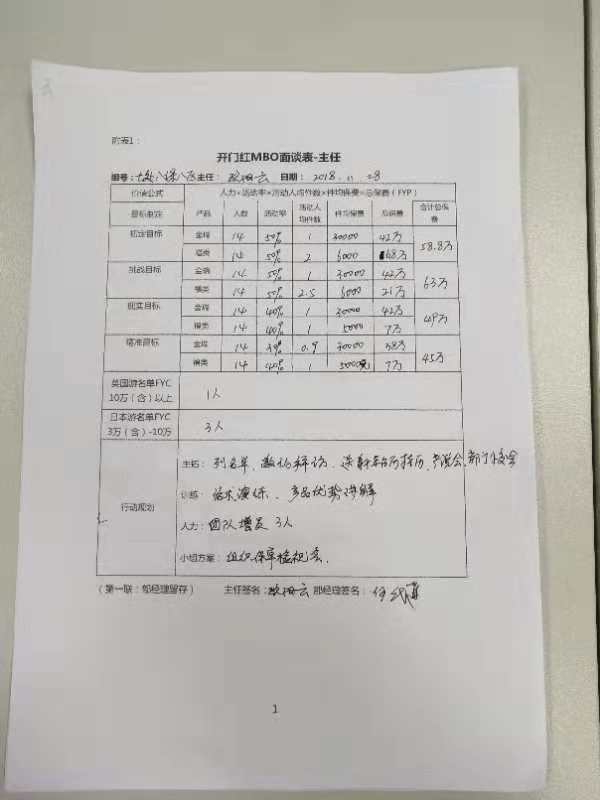 附表1：
开门红MBO面谈表-主任
编号： 主任： 云 日期： 2018.11.28
价值公式 人力×活动率×活动人均件数×件均保费=总保费（FYP）
目标制定 产品 人数 活动率 活动人均件数 件均保费 总保费 合计总保费
初定目标 金瑞 14 50% 1 30000 42万 58.8万
福类 14 50% 2 6000 68万
挑战目标 金瑞 14 50% 1 30000 42万 63万
福类 14 50% 2.5 6000 21万
现实目标 金瑞 14 40% 1 30000 42万 49万
福类 14 40% 1 5000 7万
精准目标 金瑞 14 39% 0.9 30000 38万 45万
福类 14 40% 1 5000 7万
英国游名单FYC 10万（含）以上 1人
日本游名单FYC 3万（含）-10万 3人
行动规划
主拓： 列名单、 拜访、
训练： 话术演练、产品优势讲解
人力： 团队增员3人
小组方案： 组织保单检视会.
（第一联：部经理留存） 主任签名： 云 部经理签名：
1